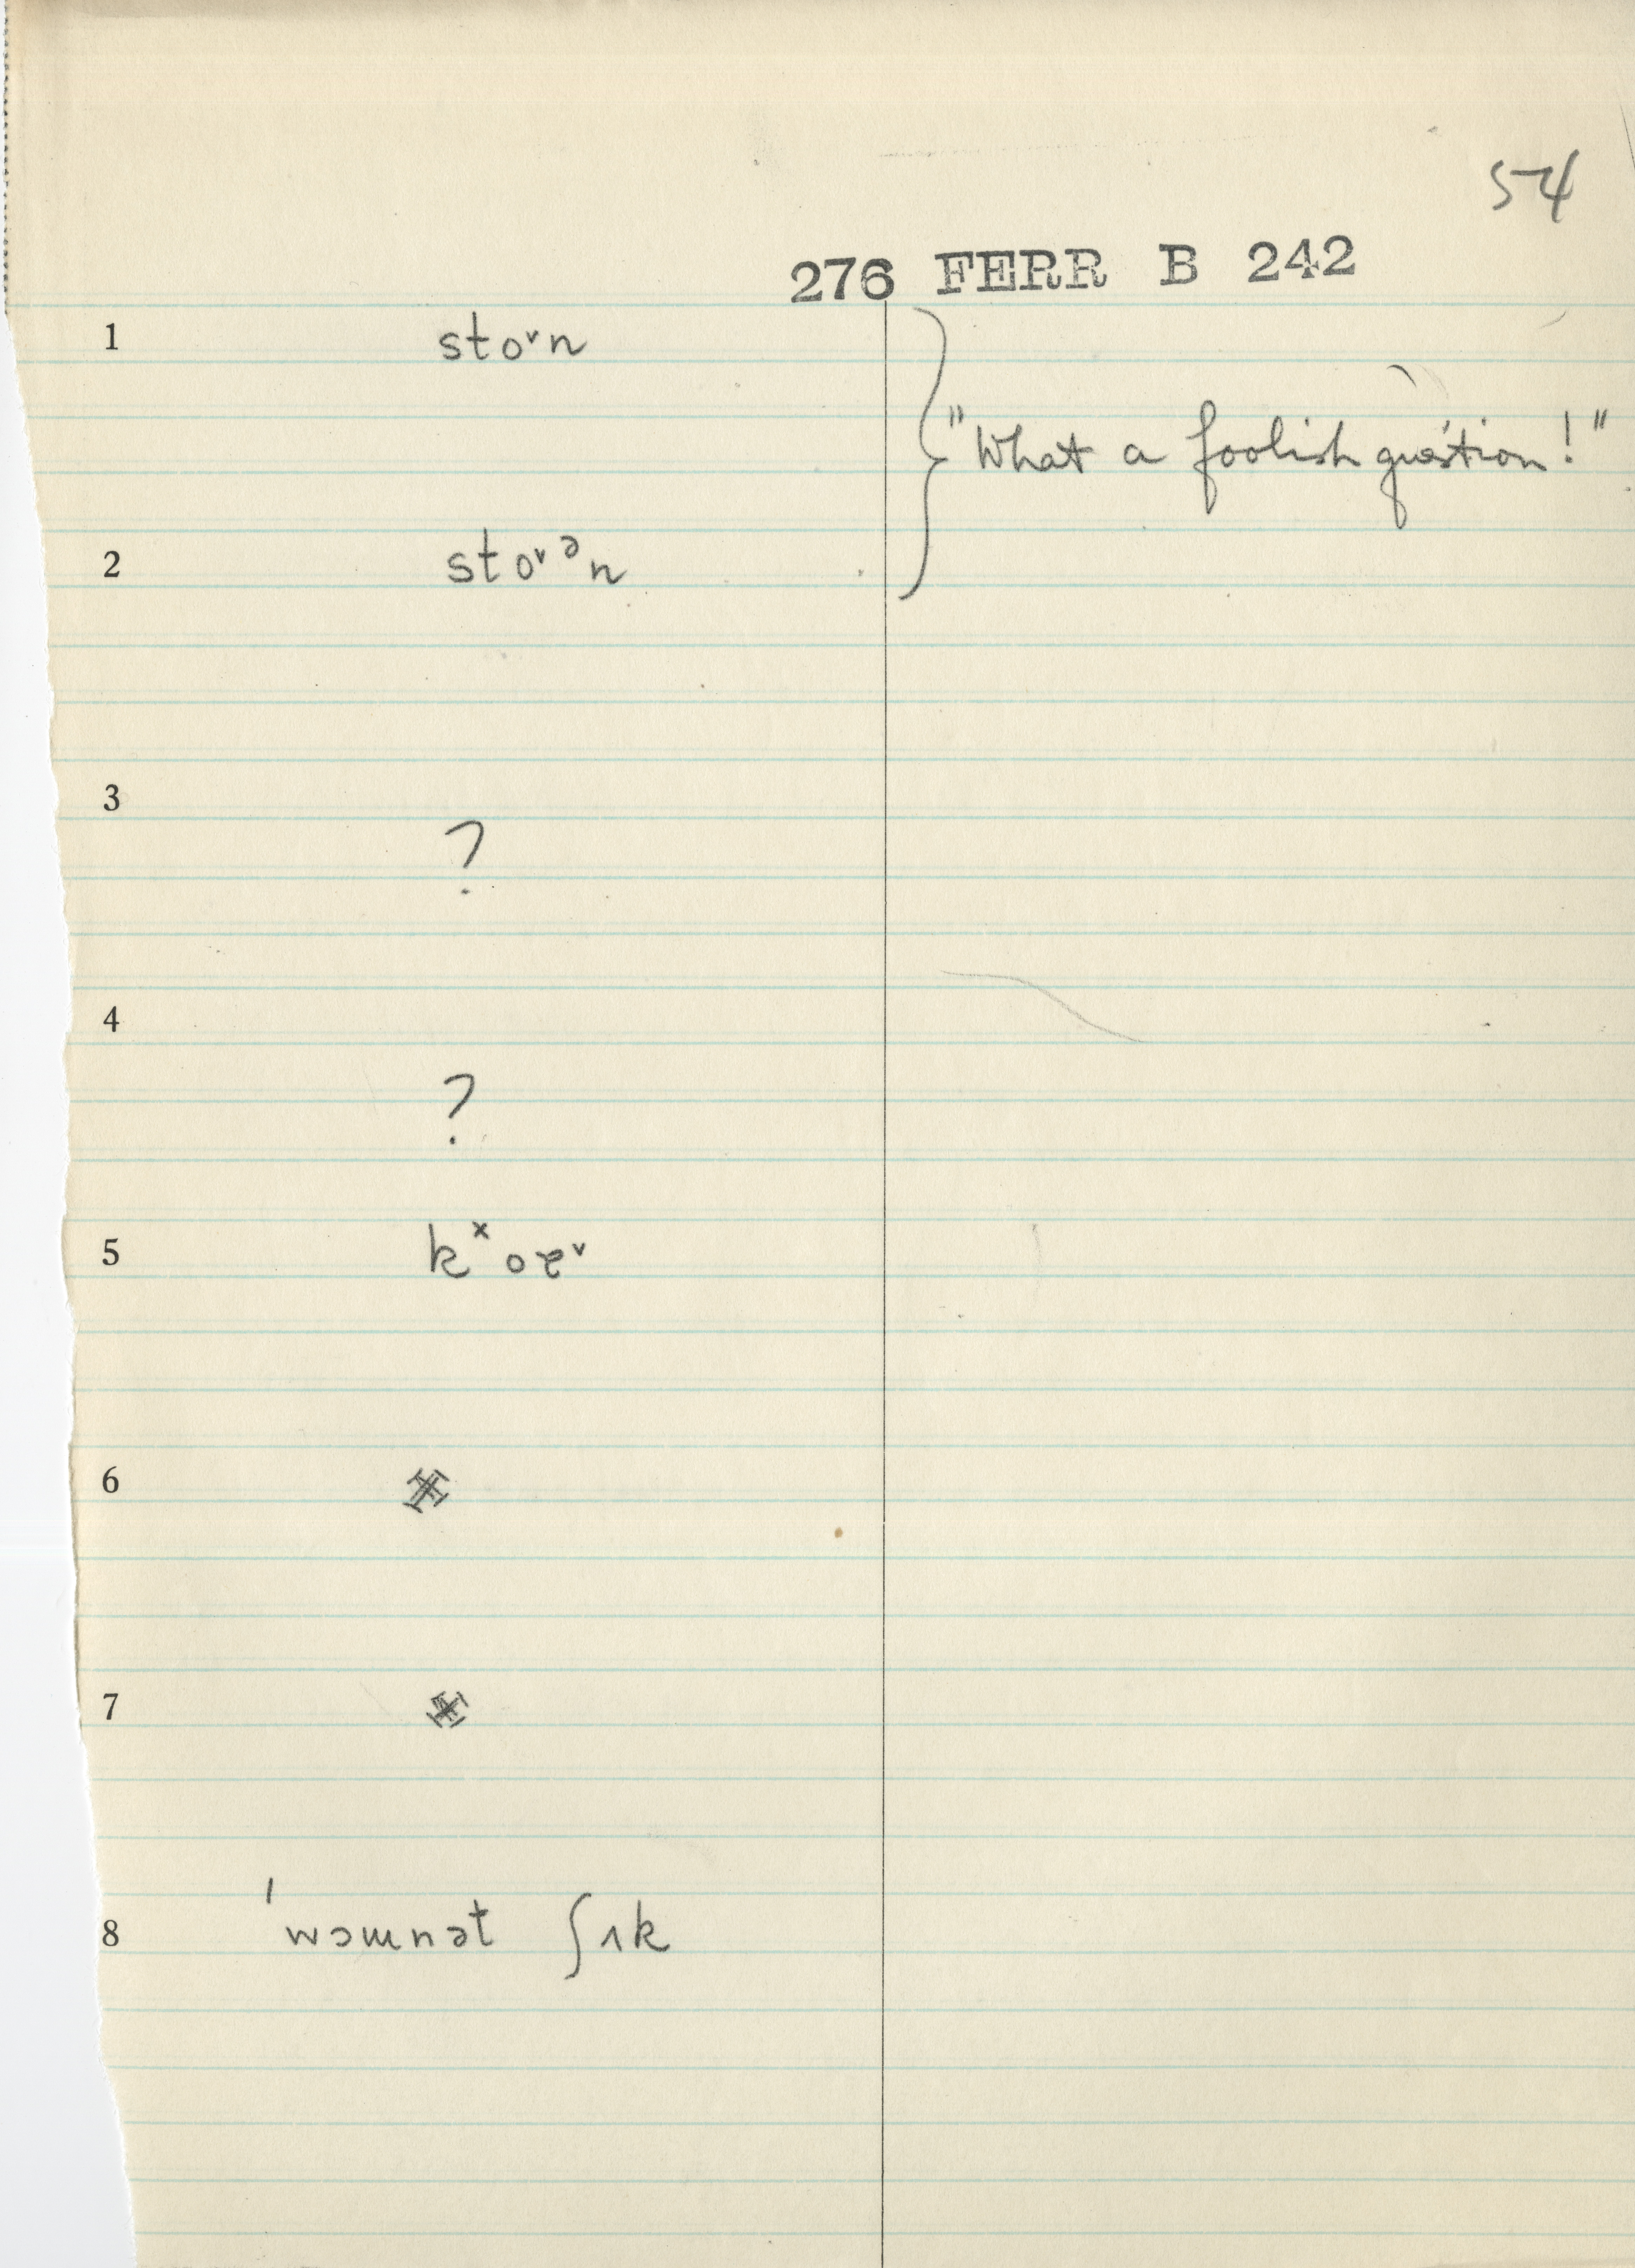 54
276 FERR B 242
1 sto˅n
"What a foolish question!"
2 sto˅ᵊn
3
?
4
?
5 kˣoe˅
6
7
8 ˈwɔmnət ʃɪk